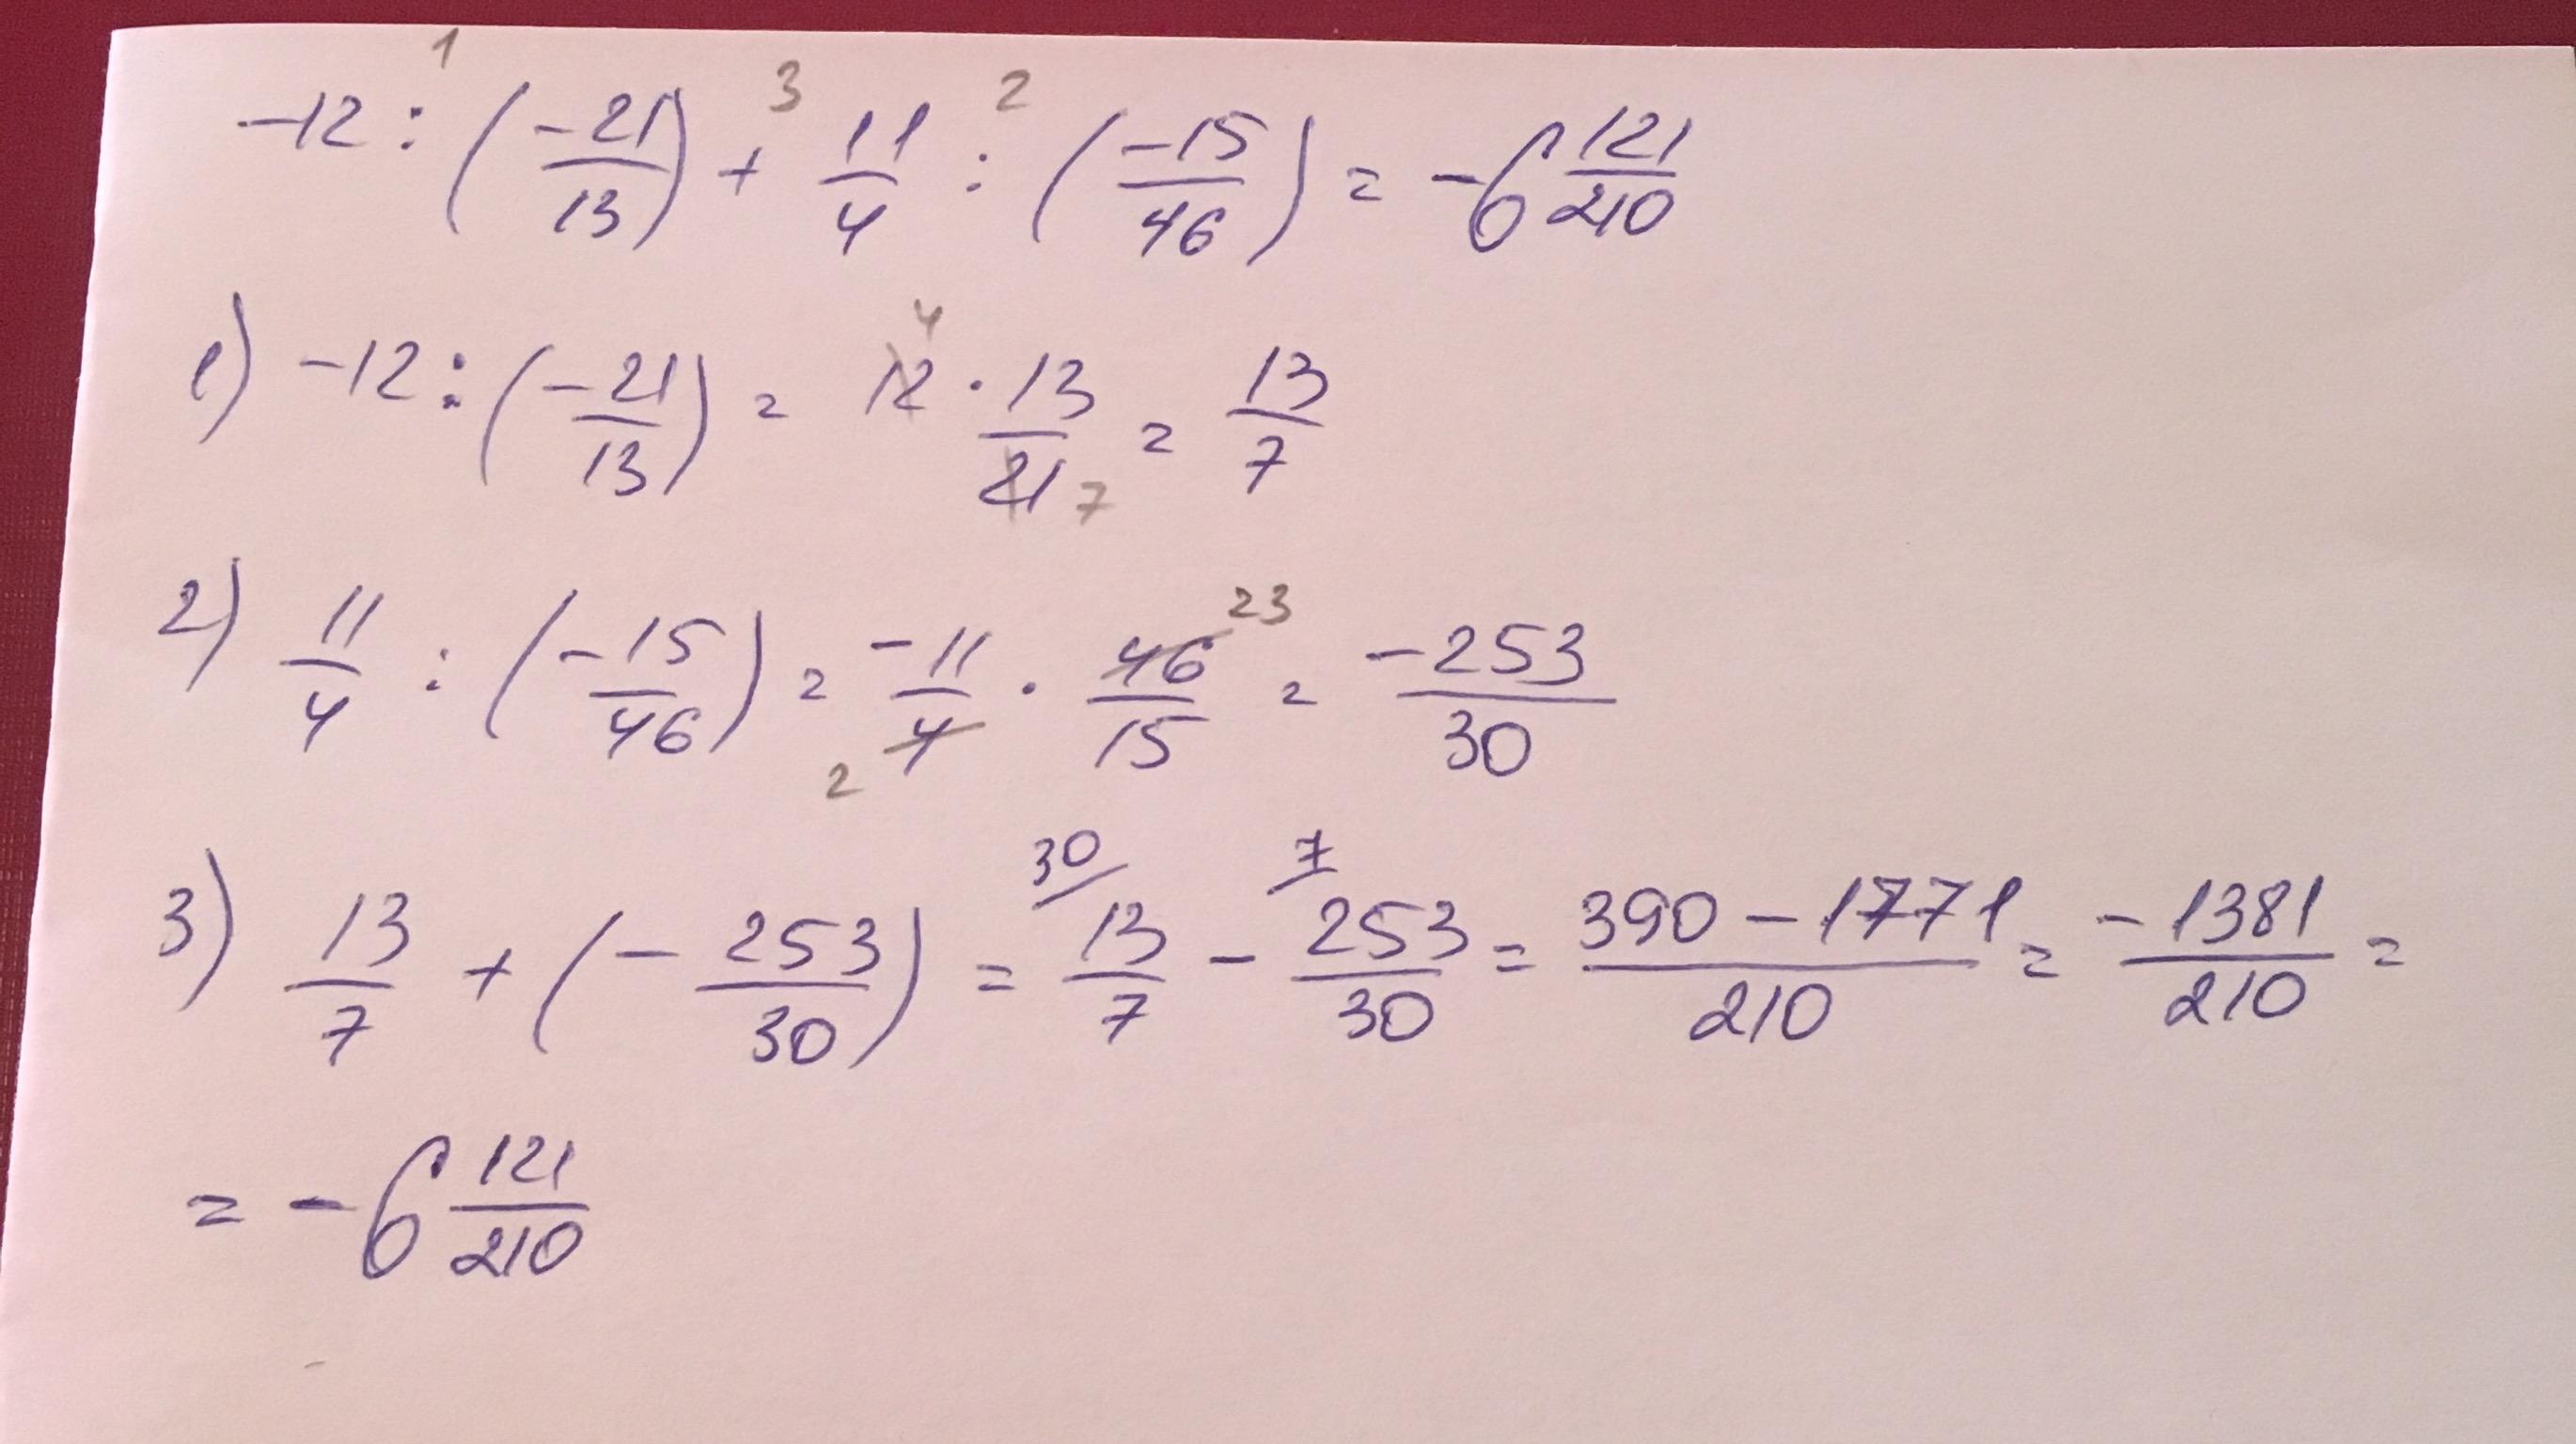 1 3 2
-12 : (-21/13) + 11/4 : (-15/46) = -6 121/210
4
1) -12 : (-21/13) = 12 · 13/21 = 13/7
7
23
2) 11/4 : (-15/46) = -11/4 · 46/15 = -253/30
2
30 7
3) 13/7 + (-253/30) = 13/7 - 253/30 = 390-1771/210 = -1381/210 =
= -6 121/210